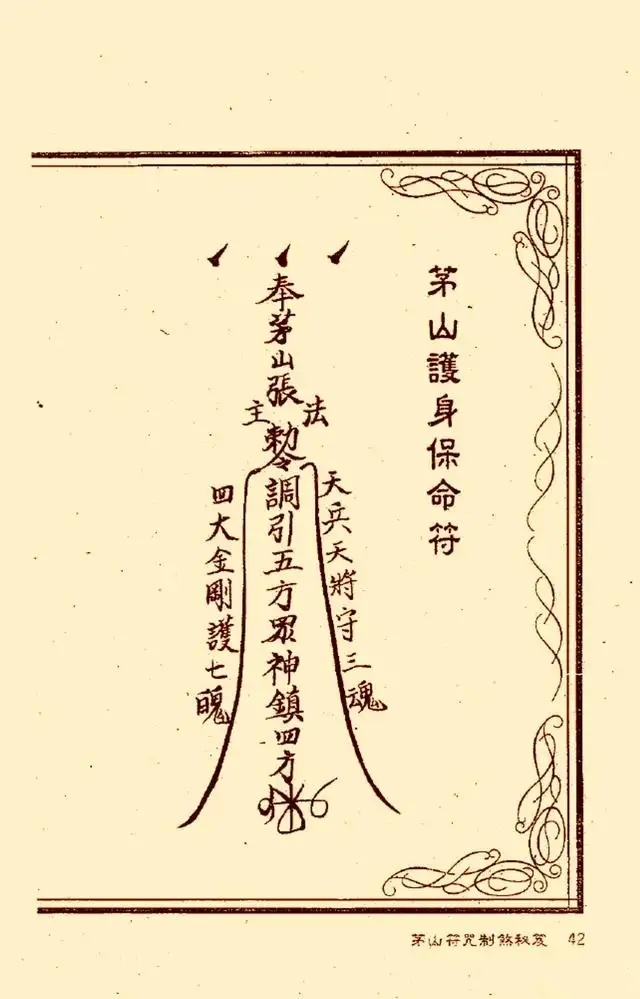 茅山護身保命符
奉茅山張
法主
勅令調引五方眾神鎮四方
天兵天將守三魂
四大金剛護七魄
茅山符咒制煞秘笈 42